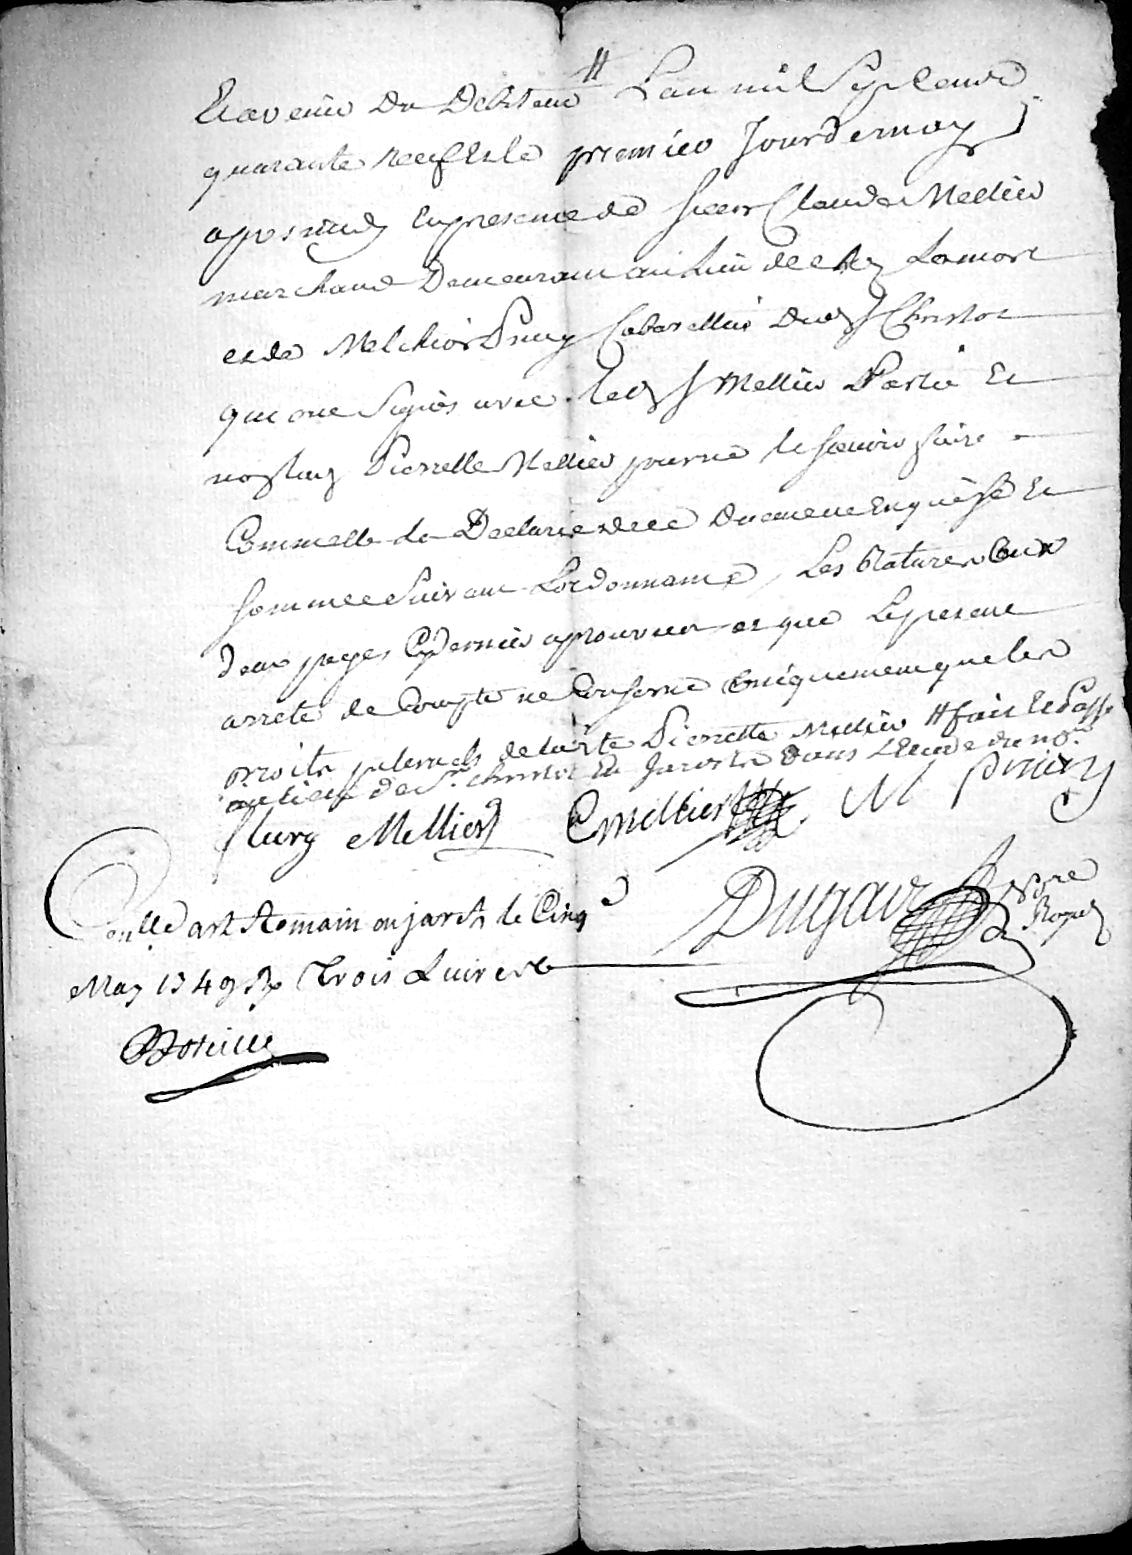 Et avenir du debiteur # Lan mil Sept cents
quarante neuf et le premier Jour de may
apres midy En presence de sieur Claude Mellier
marchand Demeurant au lieu de Lamort
et de Melchior Priery Cabarettier dud St Christot
qui ont Signés avec led Sr Mellier Partie Et
non lad Pierrette Mellier pour ne le scavoir faire
Comme elle la Declaré de ce Duement Enquise Et
sommée Suivant Lordonnance, Les Ratures aux
deux pages Cy dernier aprouvées et que Le present
arreté de Compte ne Conserne Uniquement que les
droits paternels de ladite Pierrette Mellier # fait Et Passé
au lieu de St Christot En Jarest Dans L'Etude du nore
fleury Mellier C Mellier M priery
Conllé a St Romain en jarest le Cinq
May 1749 R Trois Livres
Dugas Nore Royal